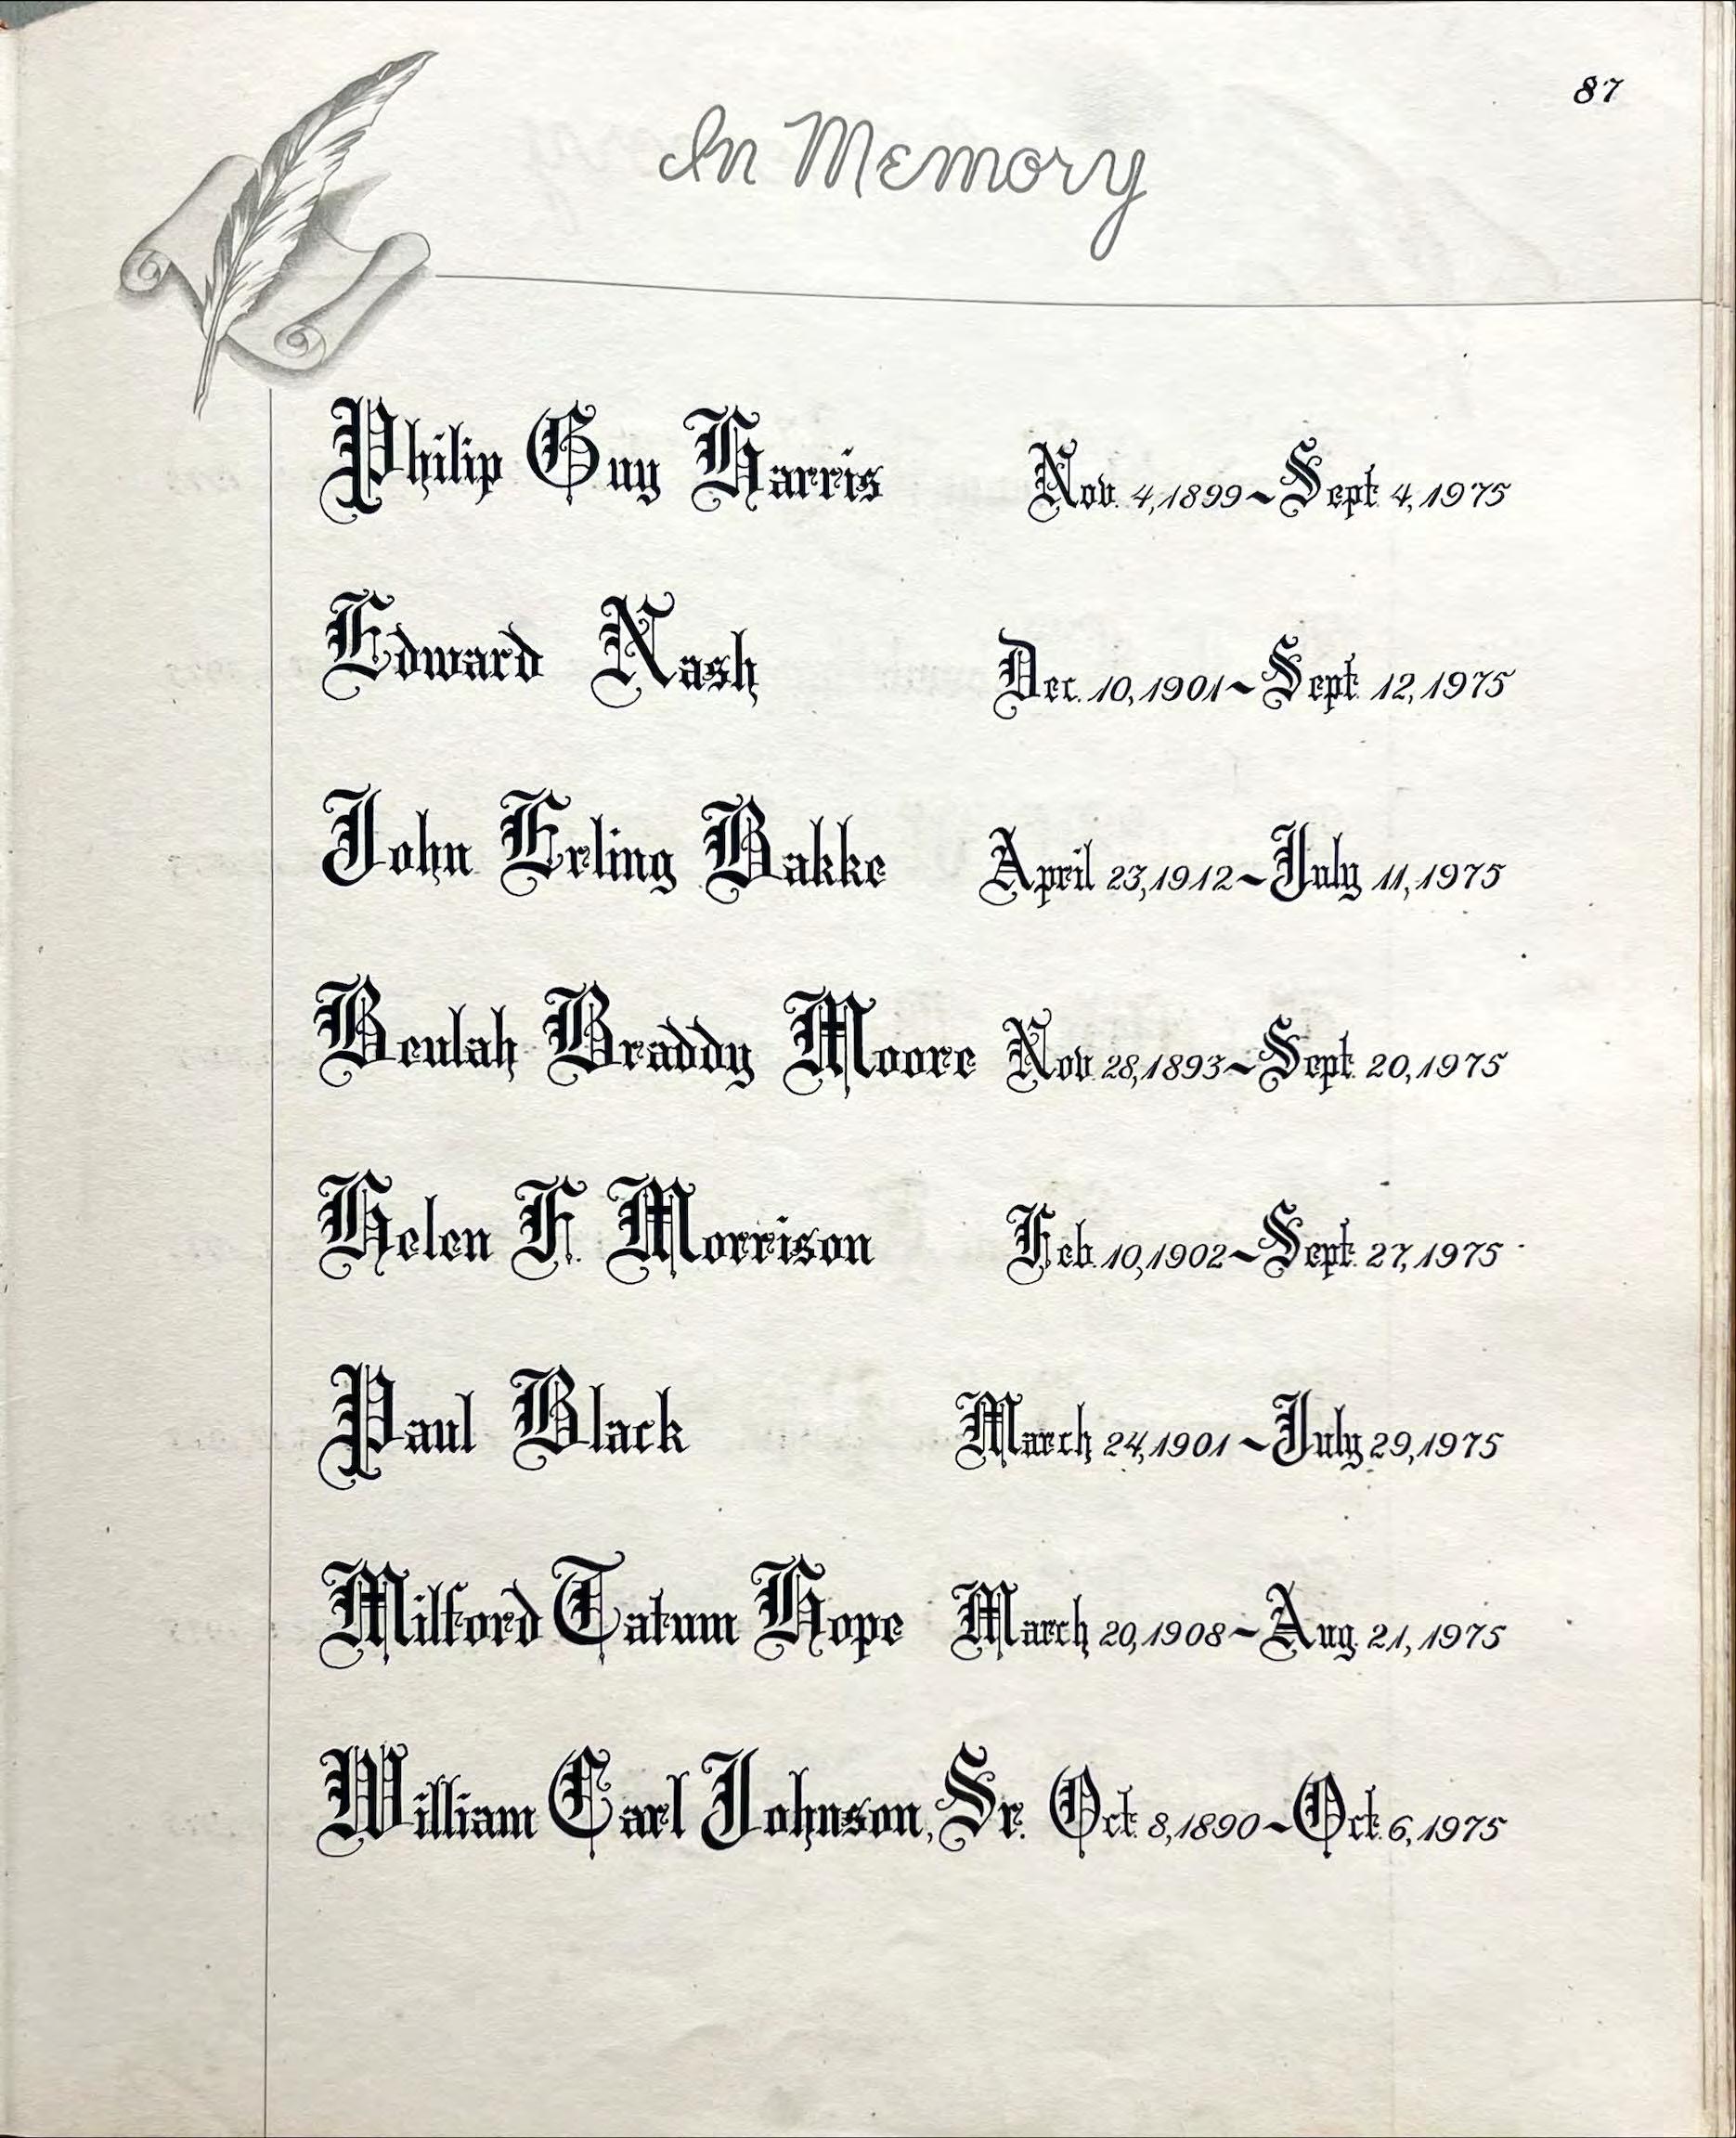 87
In Memory
Philip Guy Harris Nov. 4, 1899 ~ Sept. 4, 1975
Edward Nash Dec. 10, 1901 ~ Sept. 12, 1975
John Erling Bakke April 23, 1912 ~ July 11, 1975
Beulah Braddy Moore Nov. 28, 1893 ~ Sept. 20, 1975
Helen F. Morrison Feb. 10, 1902 ~ Sept. 27, 1975
Paul Black March 24, 1901 ~ July 29, 1975
Milford Tatum Hope March 20, 1908 ~ Aug. 21, 1975
William Carl Johnson, Sr. Oct. 8, 1890 ~ Oct. 6, 1975